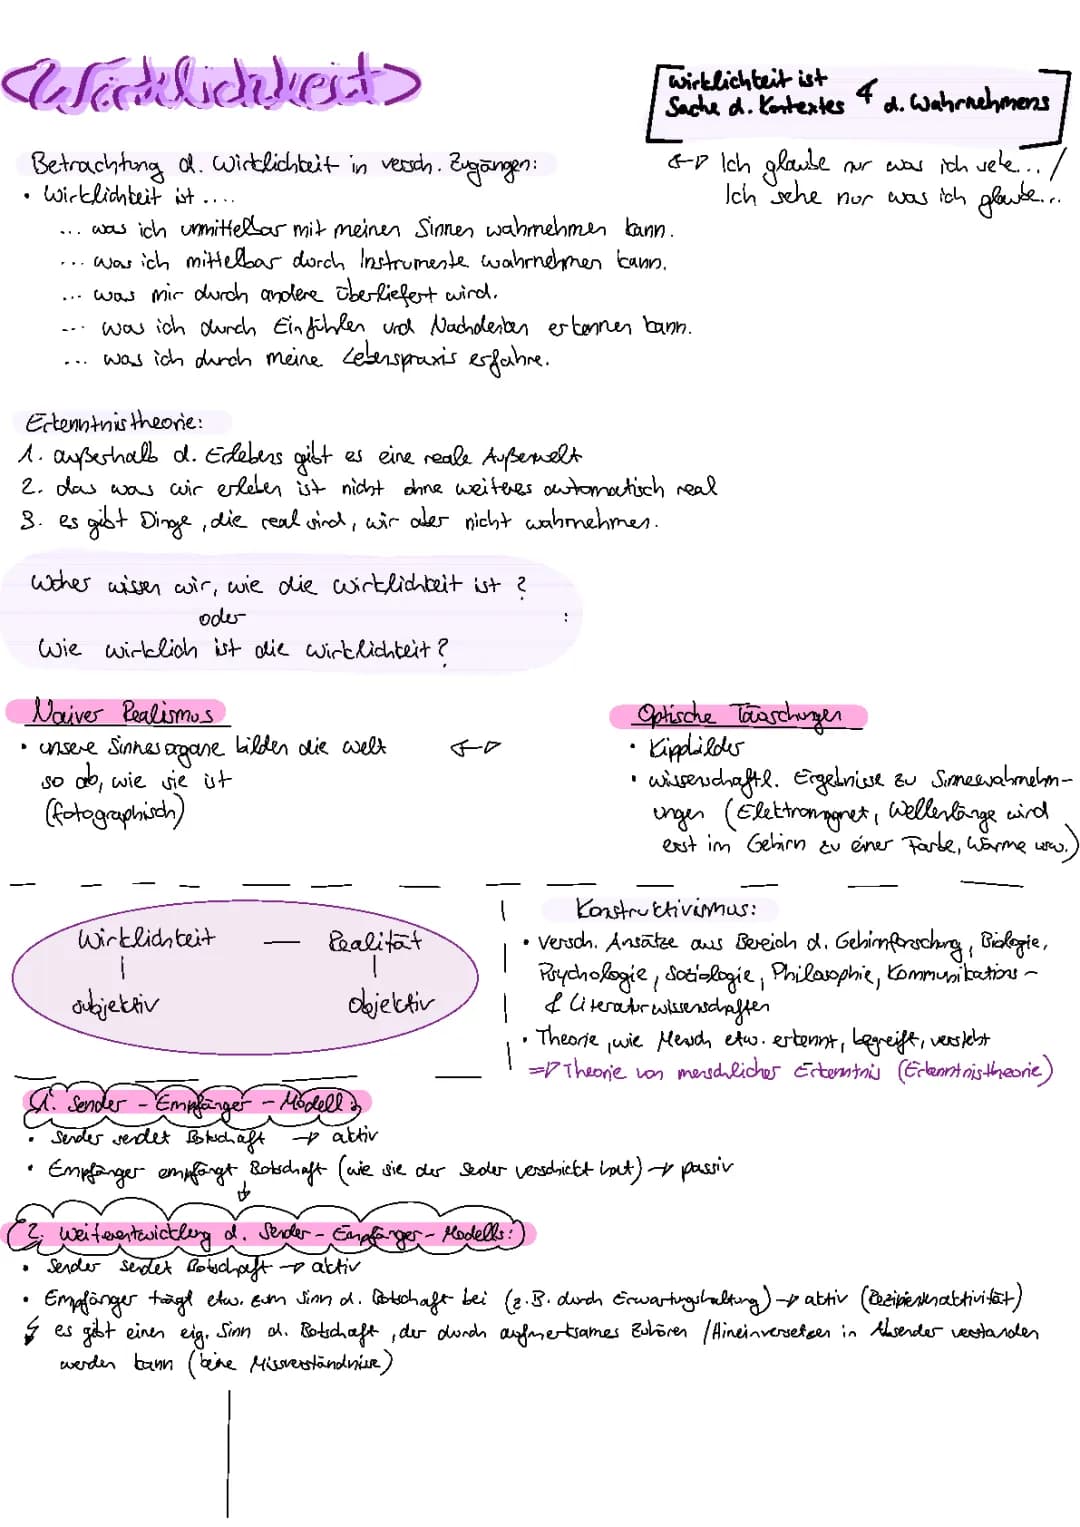 Wirklichkeit
Wirklichkeit ist
Sache d. Kontextes & d. Wahrnehmens
Betrachtung d. Wirklichkeit in versch. Zugängen:
<-> Ich glaube nur was ich sehe... /
Ich sehe nur was ich glaube...
• Wirklichkeit ist ....
... was ich unmittelbar mit meinen Sinnen wahrnehmen kann.
... was ich mittelbar durch Instrumente wahrnehmen kann.
... was mir durch andere überliefert wird.
... was ich durch Einfühlen und Nachdenken erkennen kann.
... was ich durch meine Lebenspraxis erfahre.
Erkenntnistheorie:
1. außerhalb d. Erlebens gibt es eine reale Außenwelt
2. das was wir erleben ist nicht ohne weiteres automatisch real
3. es gibt Dinge, die real sind, wir aber nicht wahrnehmen.
Woher wissen wir, wie die Wirklichkeit ist?
oder :
Wie wirklich ist die Wirklichkeit?
Naiver Realismus
• unsere Sinnesorgane bilden die Welt <->
so ab, wie sie ist
(fotographisch)
Optische Täuschungen
• Kippbilder
• wissenschaftl. Ergebnisse zu Sinneswahrnehm-
ungen (Elektromagnet, Wellenlänge wird
erst im Gehirn zu einer Farbe, Wärme usw.)
Wirklichkeit — Realität
subjektiv objektiv
Konstruktivismus:
• versch. Ansätze aus Bereich d. Gehirnforschung, Biologie,
Psychologie, Soziologie, Philosophie, Kommunikations-
& Literaturwissenschaften
• Theorie, wie Mensch etw. erkennt, begreift, versteht
=> Theorie von menschlicher Erkenntnis (Erkenntnistheorie)
1. Sender - Empfänger - Modell:
• Sender sendet Botschaft -> aktiv
• Empfänger empfängt Botschaft (wie sie der Sender verschickt hat) -> passiv
2. Weiterentwicklung d. Sender - Empfänger - Modells:
• Sender sendet Botschaft -> aktiv
• Empfänger trägt etw. zum Sinn d. Botschaft bei (z.B. durch Erwartungshaltung) -> aktiv (Rezipientenaktivität)
↯ es gibt einen eig. Sinn d. Botschaft, der durch aufmerksames Zuhören / Hineinversetzen in Absender verstanden
werden kann (keine Missverständnisse)